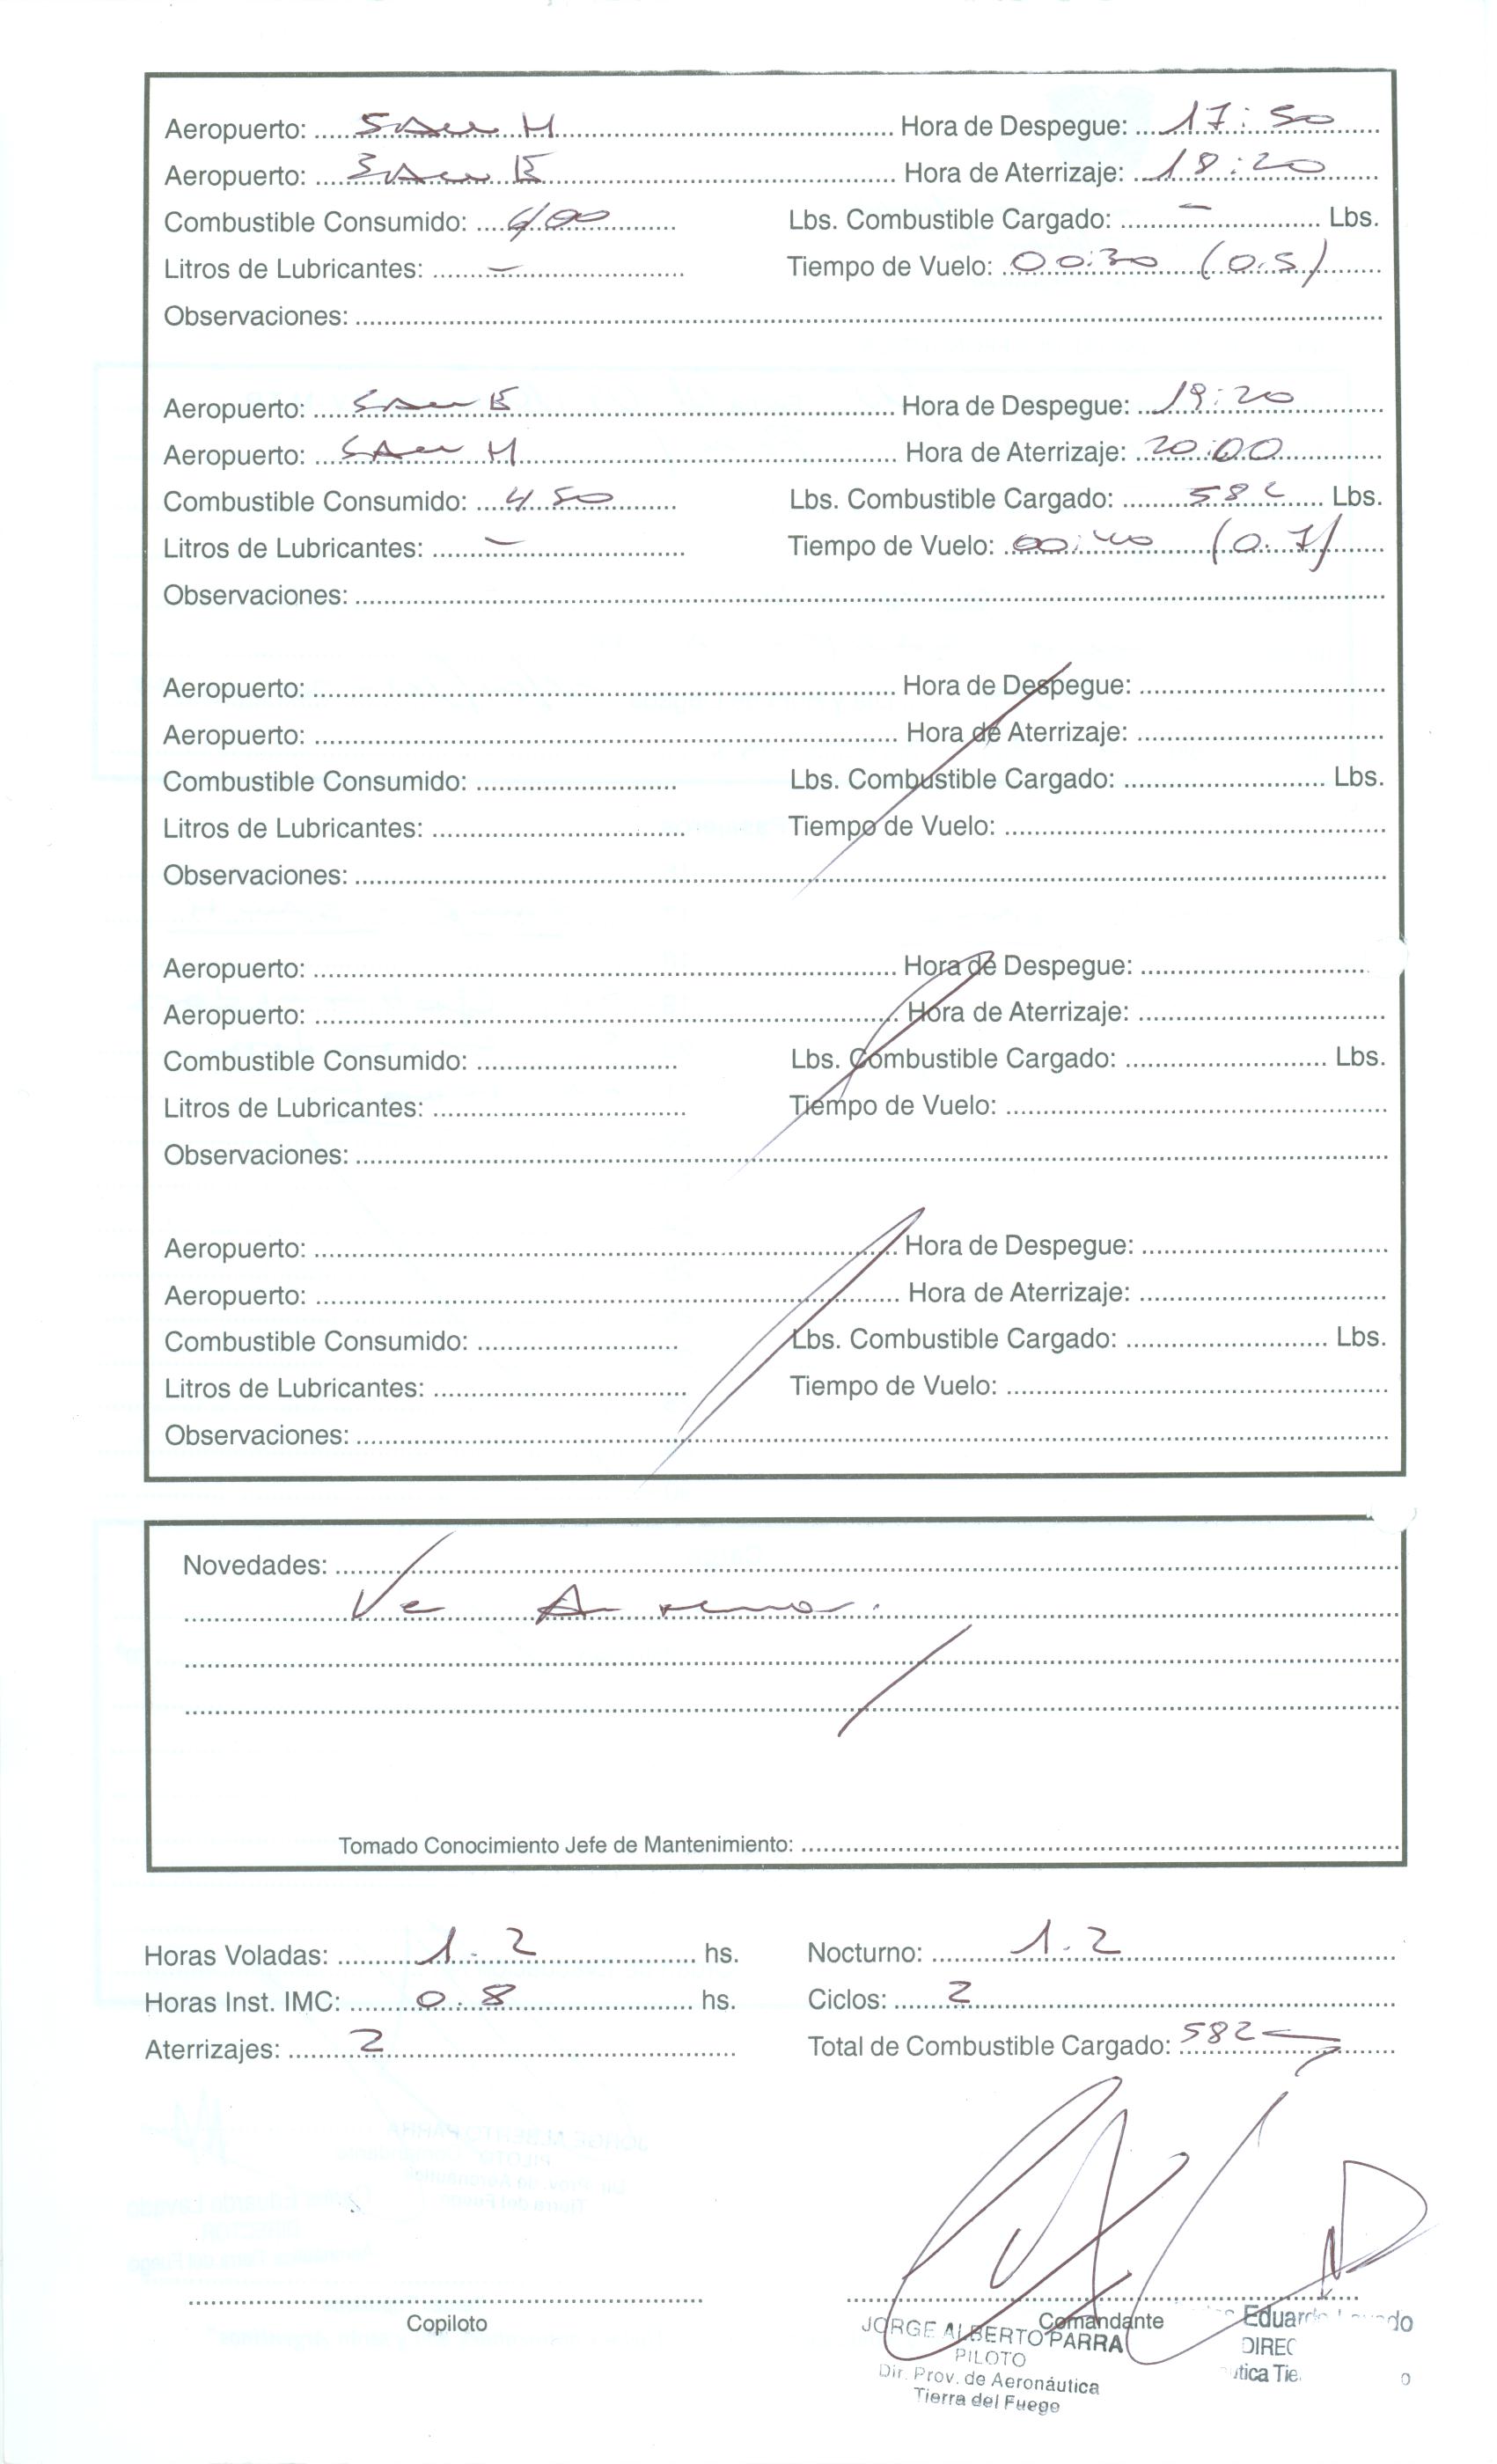 Aeropuerto: SAWH Hora de Despegue: 17:50
Aeropuerto: SAWE Hora de Aterrizaje: 18:20
Combustible Consumido: 400 Lbs. Combustible Cargado: – Lbs.
Litros de Lubricantes: – Tiempo de Vuelo: 00:30 (0.5)
Observaciones:
Aeropuerto: SAWE Hora de Despegue: 19:20
Aeropuerto: SAWH Hora de Aterrizaje: 20:00
Combustible Consumido: 450 Lbs. Combustible Cargado: 582 Lbs.
Litros de Lubricantes: – Tiempo de Vuelo: 00:40 (0.7)
Observaciones:
Aeropuerto: Hora de Despegue:
Aeropuerto: Hora de Aterrizaje:
Combustible Consumido: Lbs. Combustible Cargado: Lbs.
Litros de Lubricantes: Tiempo de Vuelo:
Observaciones:
Aeropuerto: Hora de Despegue:
Aeropuerto: Hora de Aterrizaje:
Combustible Consumido: Lbs. Combustible Cargado: Lbs.
Litros de Lubricantes: Tiempo de Vuelo:
Observaciones:
Aeropuerto: Hora de Despegue:
Aeropuerto: Hora de Aterrizaje:
Combustible Consumido: Lbs. Combustible Cargado: Lbs.
Litros de Lubricantes: Tiempo de Vuelo:
Observaciones:
Novedades:
Tomado Conocimiento Jefe de Mantenimiento:
Horas Voladas: 1.2 hs. Nocturno: 1.2
Horas Inst. IMC: 0.8 hs. Ciclos: 2
Aterrizajes: 2 Total de Combustible Cargado: 582
Copiloto Comandante
JORGE ALBERTO PARRA
PILOTO
Dir. Prov. de Aeronáutica
Tierra del Fuego
Eduardo
DIREC